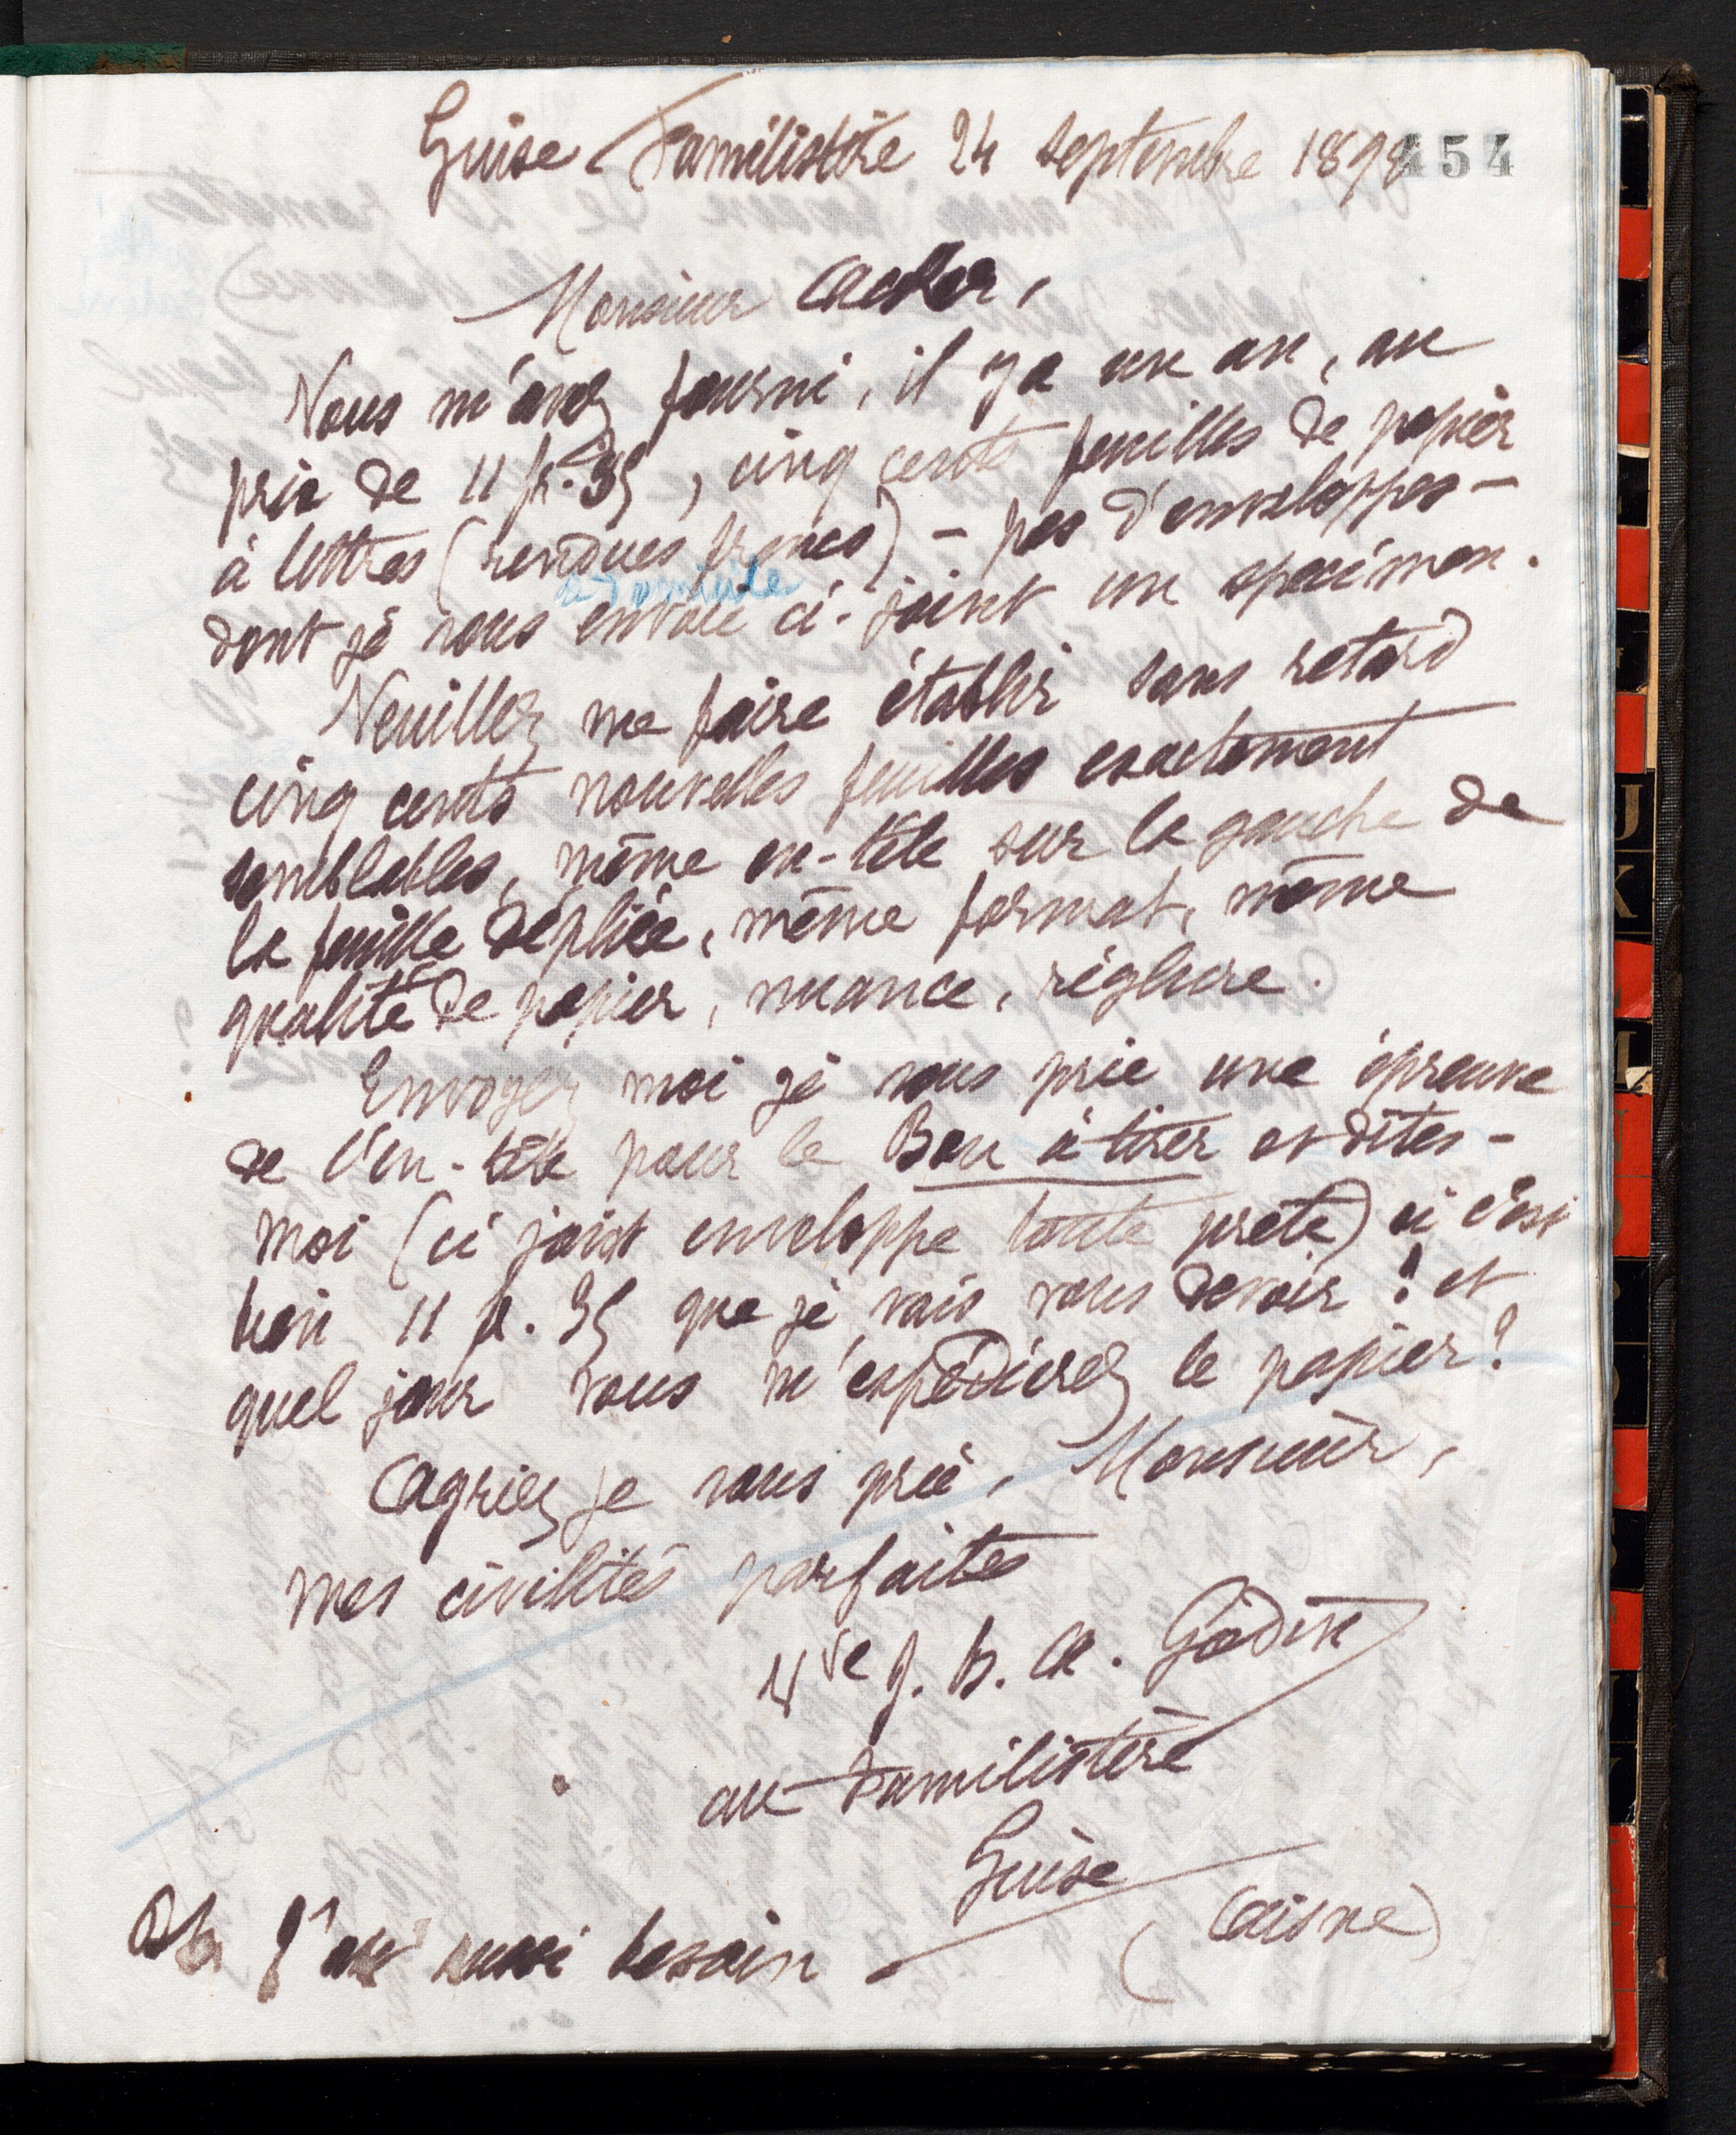 Guise Familistère 24 septembre 1898
454
Monsieur Acker,
Vous m'avez fourni, il y a un an, au
prix de 11 fr. 35, cinq cents feuilles de papier
à lettres (rendues franco) - pas d'enveloppes -
à domicile
dont je vous envoie ci-joint un spécimen.
Veuillez me faire établir sans retard
cinq cents nouvelles feuilles exactement
semblables, même en-tête sur la gauche de
la feuille dépliée, même format, même
qualité de papier, nuance, réglure.
Envoyez moi je vous prie une épreuve
de l'en-tête pour le Bon à tirer et dites-
moi (ci joint enveloppe toute prête) si c'est
bien 11 fr. 35 que je vais vous devoir ? et
quel jour vous m'expédierez le papier ?
Agréez je vous prie, Monsieur,
mes civilités parfaites
Vve J. B. A. Godin
au Familistère
Guise
(Aisne)
J'ai aussi besoin